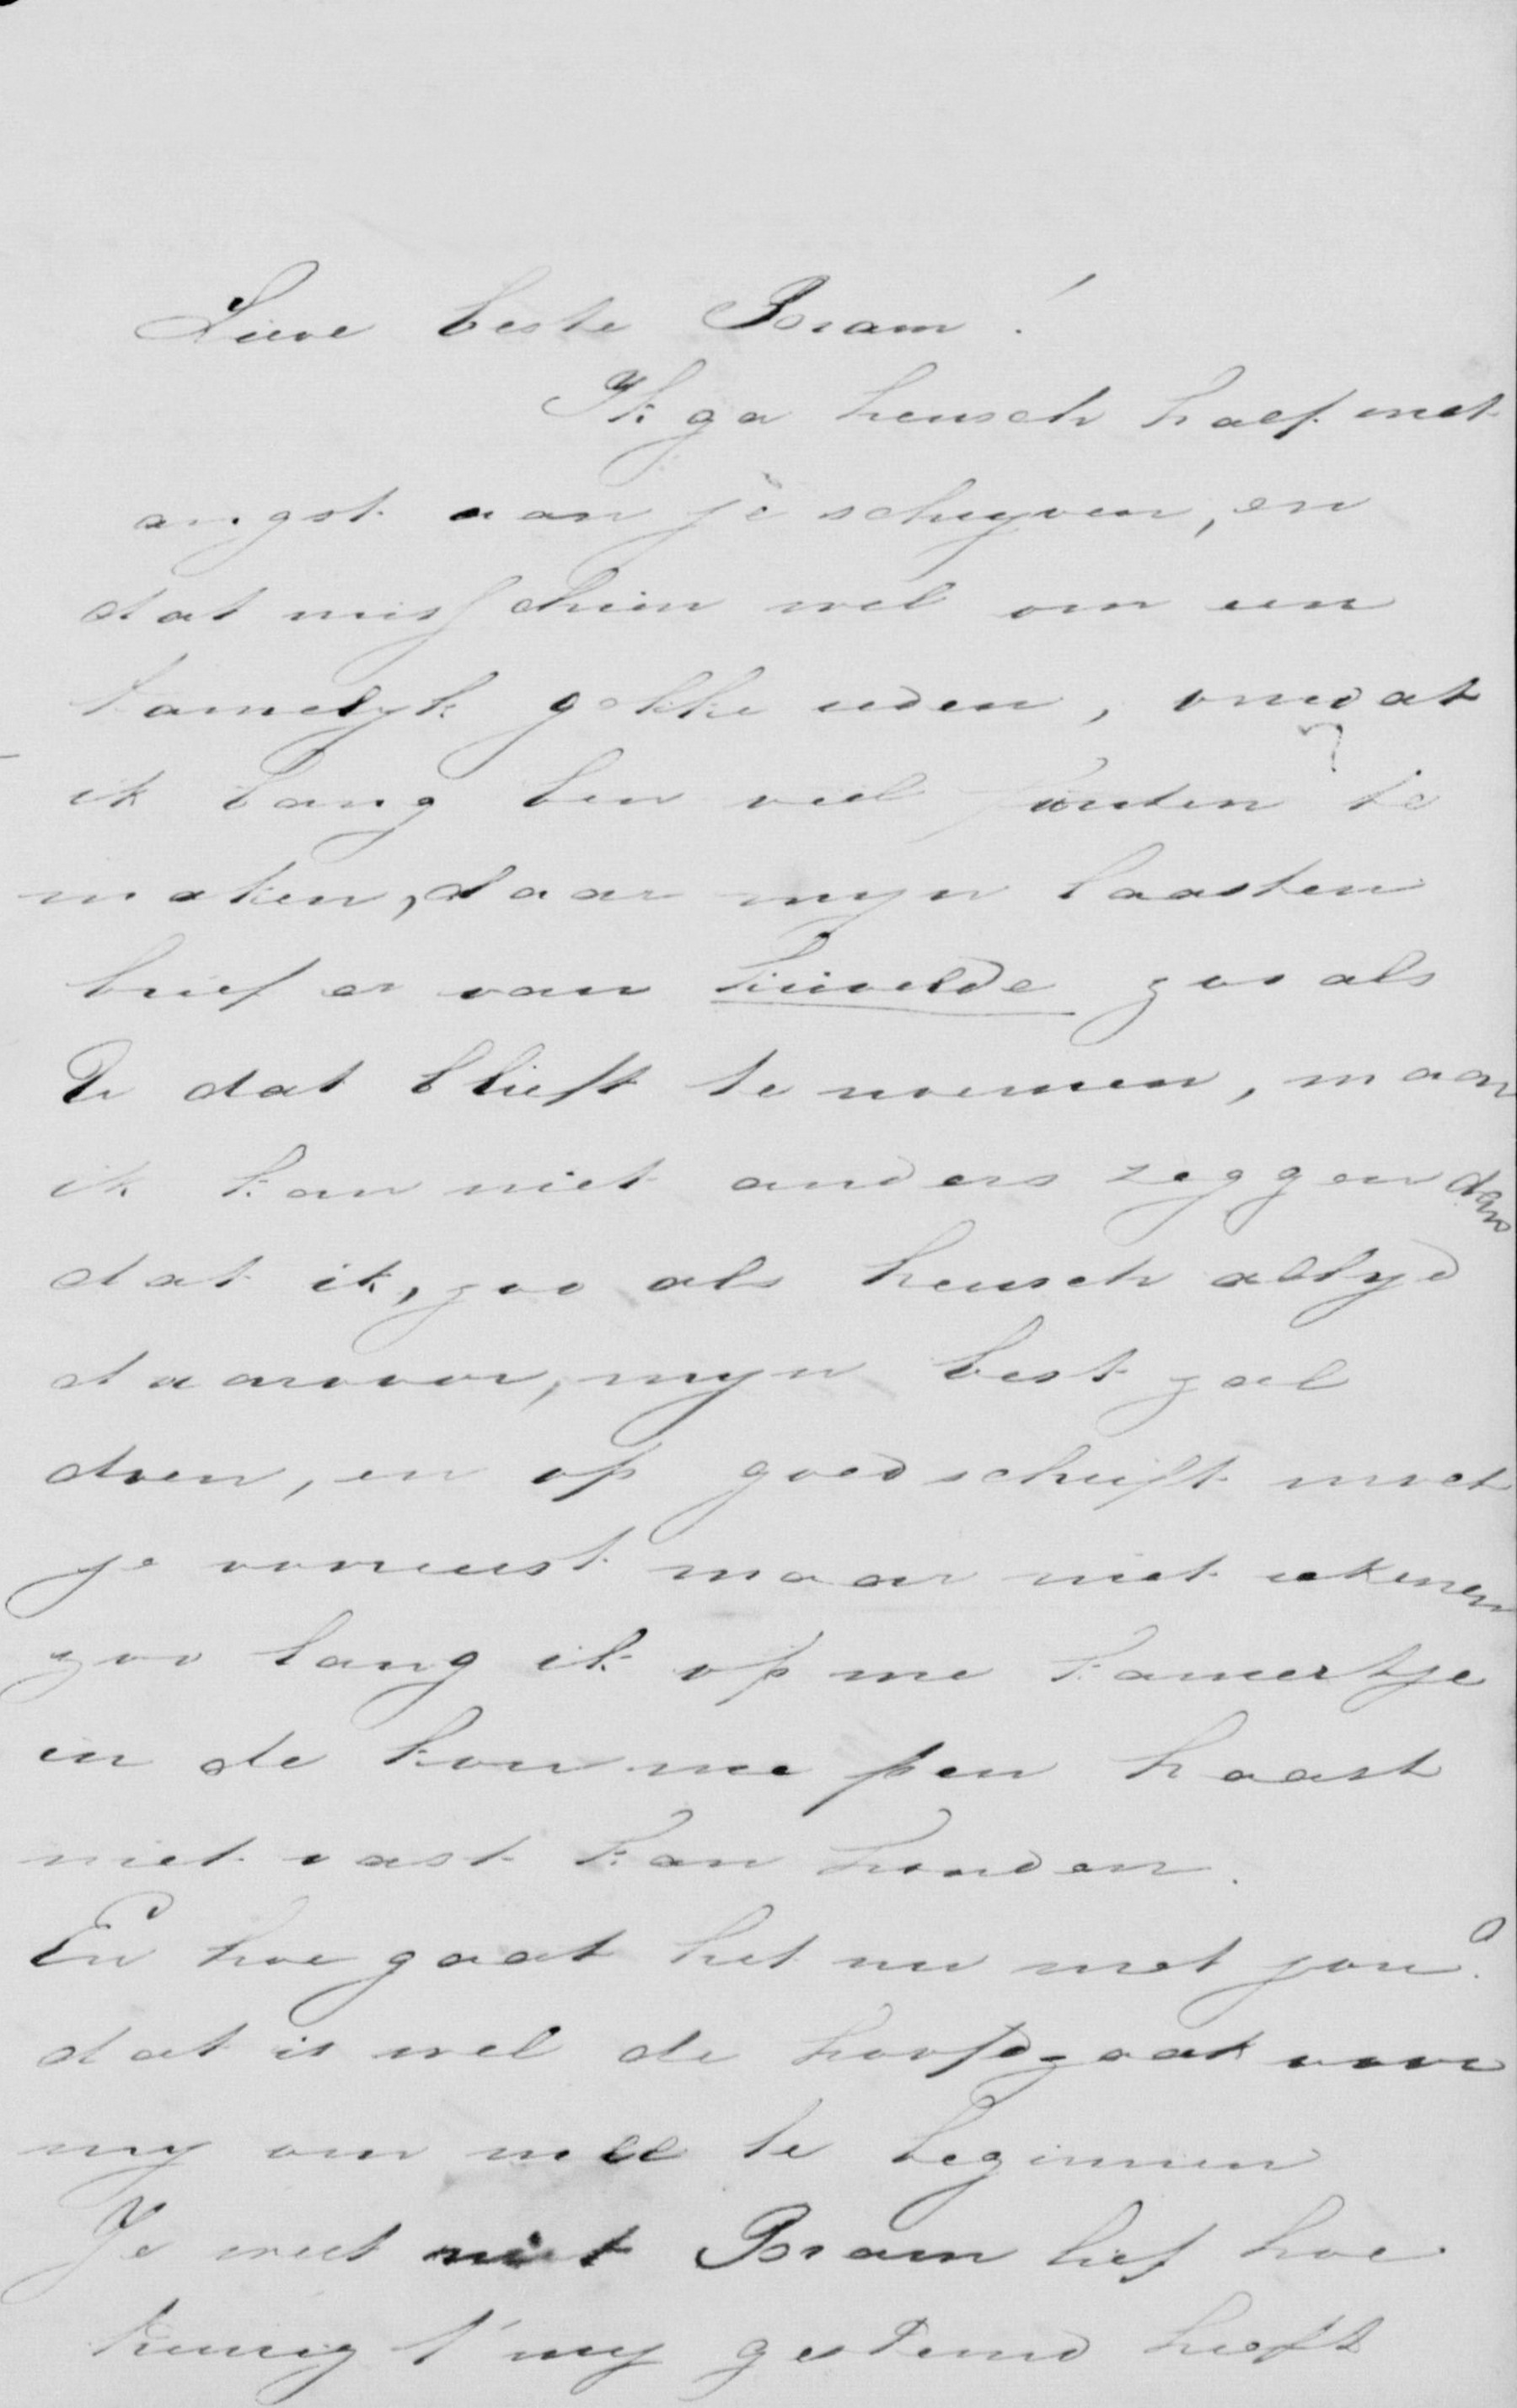 Lieve beste Bram!
Ik ga heusch half met
angst aan je schryven, en
dat misschien wel om een
tamelyk gekke reden, omdat
ik bang ben veel fouten te
maken, daar myn laasten
brief er van krioelde zoo als
Je dat blieft te noemen, maar
ik kan niet anders zeggen dan
dat ik, zoo als heusch altyd
daarvoor, myn best zal
doen, en op goed schrift moet
je vooreerst maar niet rekenen
zoo lang ik op me kamertje
in de kou me pen haast
niet vast kan houden.
En hoe gaat het nu met jou?
dat is wel de hoofdzaak voor
my om mee te beginnen
Je weet niet Bram lief hoe
treurig t' my gestemd heeft